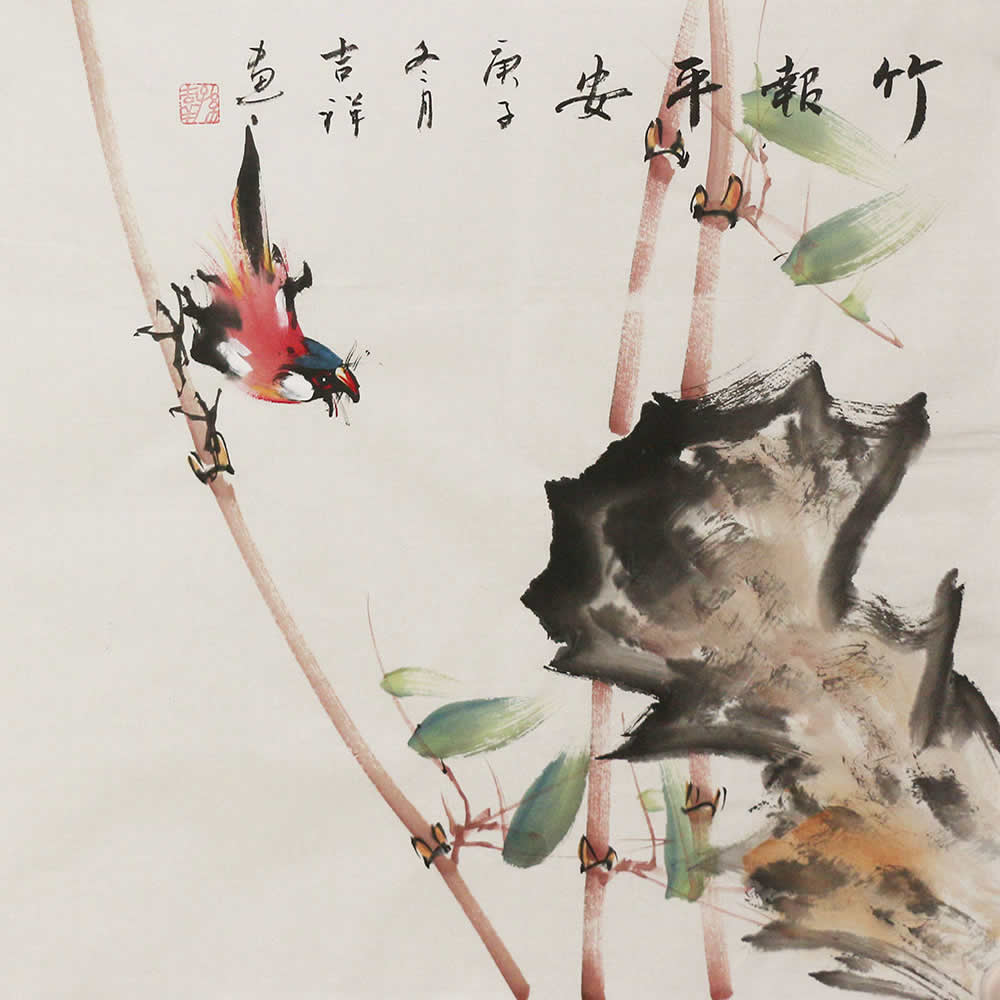 竹報平安
庚子
冬月
吉祥
画